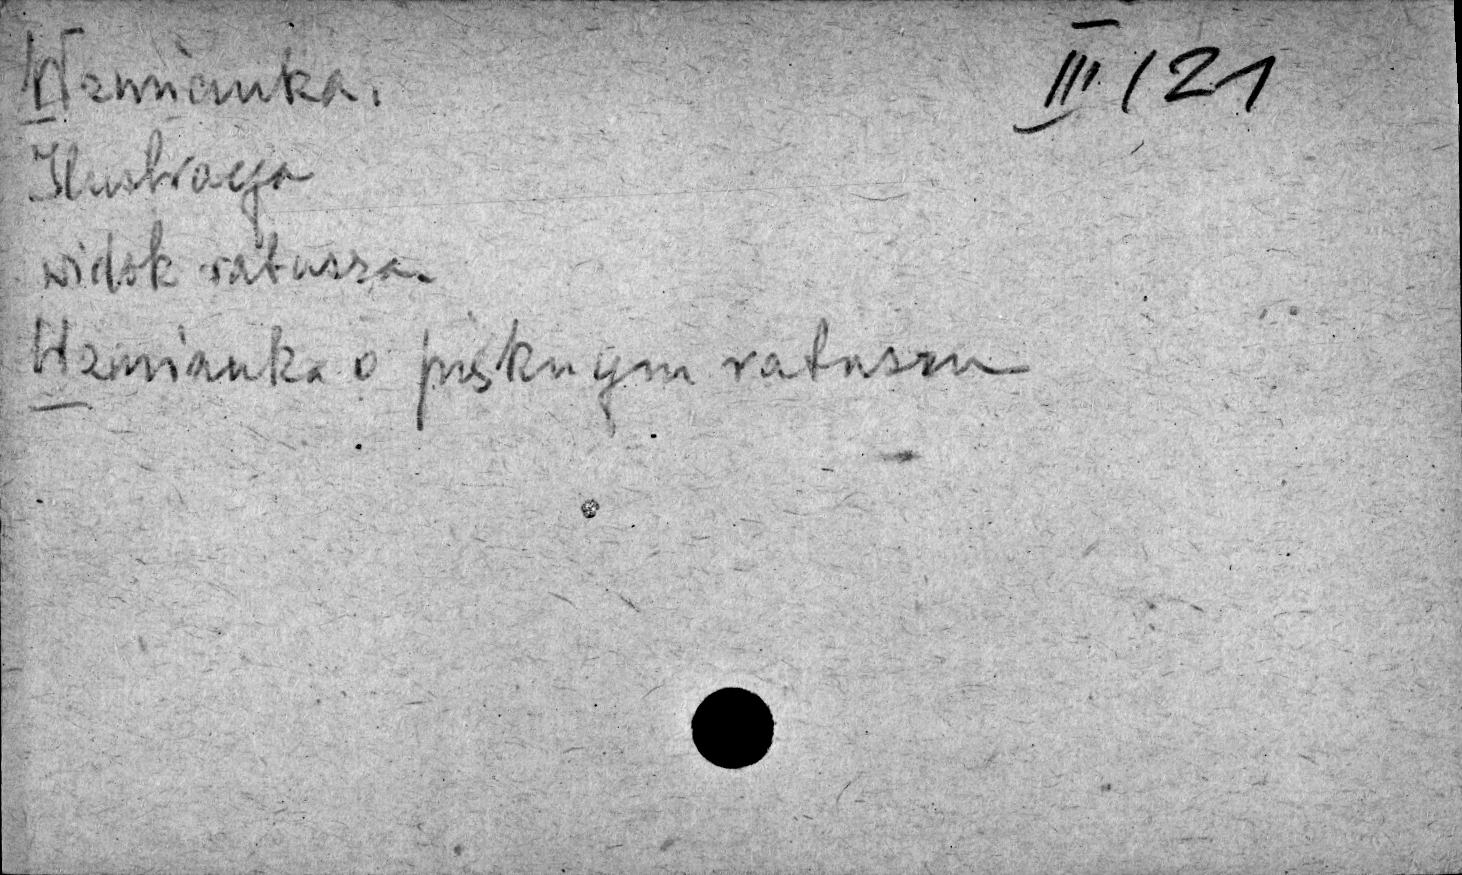 Wzmianka. III/21
Ilustracja
widok ratusza.
Wzmianka o pięknym ratuszu